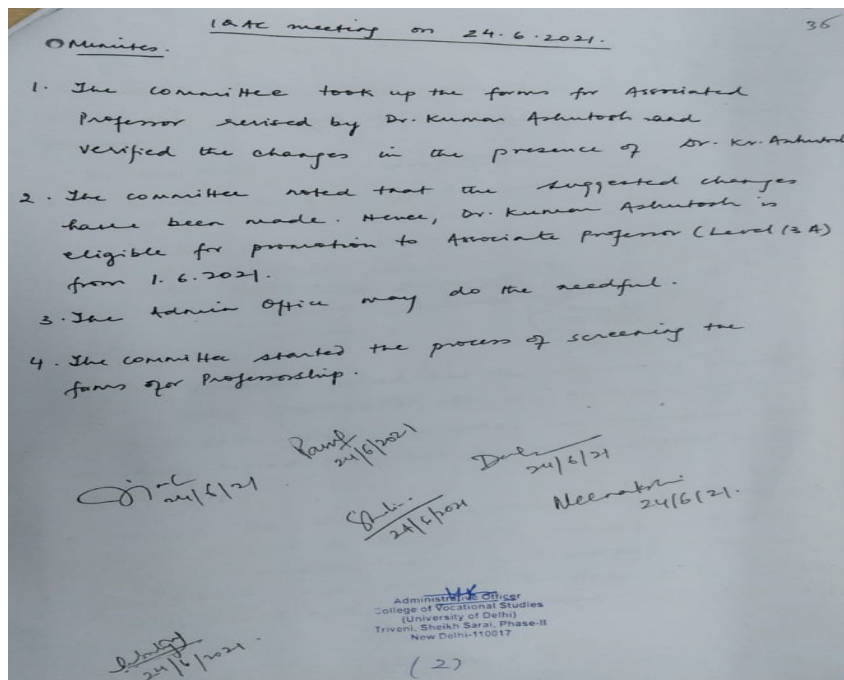 IQAC meeting on 24.6.2021.
36
Minutes.
1. The committee took up the forms for Associated
Professor revised by Dr. Kumar Ashutosh and
verified the changes in the presence of Dr. Kr. Ashutosh
2. The committee noted that the suggested changes
have been made. Hence, Dr. Kumar Ashutosh is
eligible for promotion to Associate Professor (Level 13A)
from 1.6.2021.
3. The Admin Office may do the needful.
4. The committee started the process of screening the
forms for Professorship.
24/6/2021
24/6/21
24/6/21
Meenakshi
24/6/21.
24/6/2021
Administrative Officer
College of Vocational Studies
(University of Delhi)
Triveni, Sheikh Sarai, Phase-II
New Delhi-110017
24/6/2021.
(2)